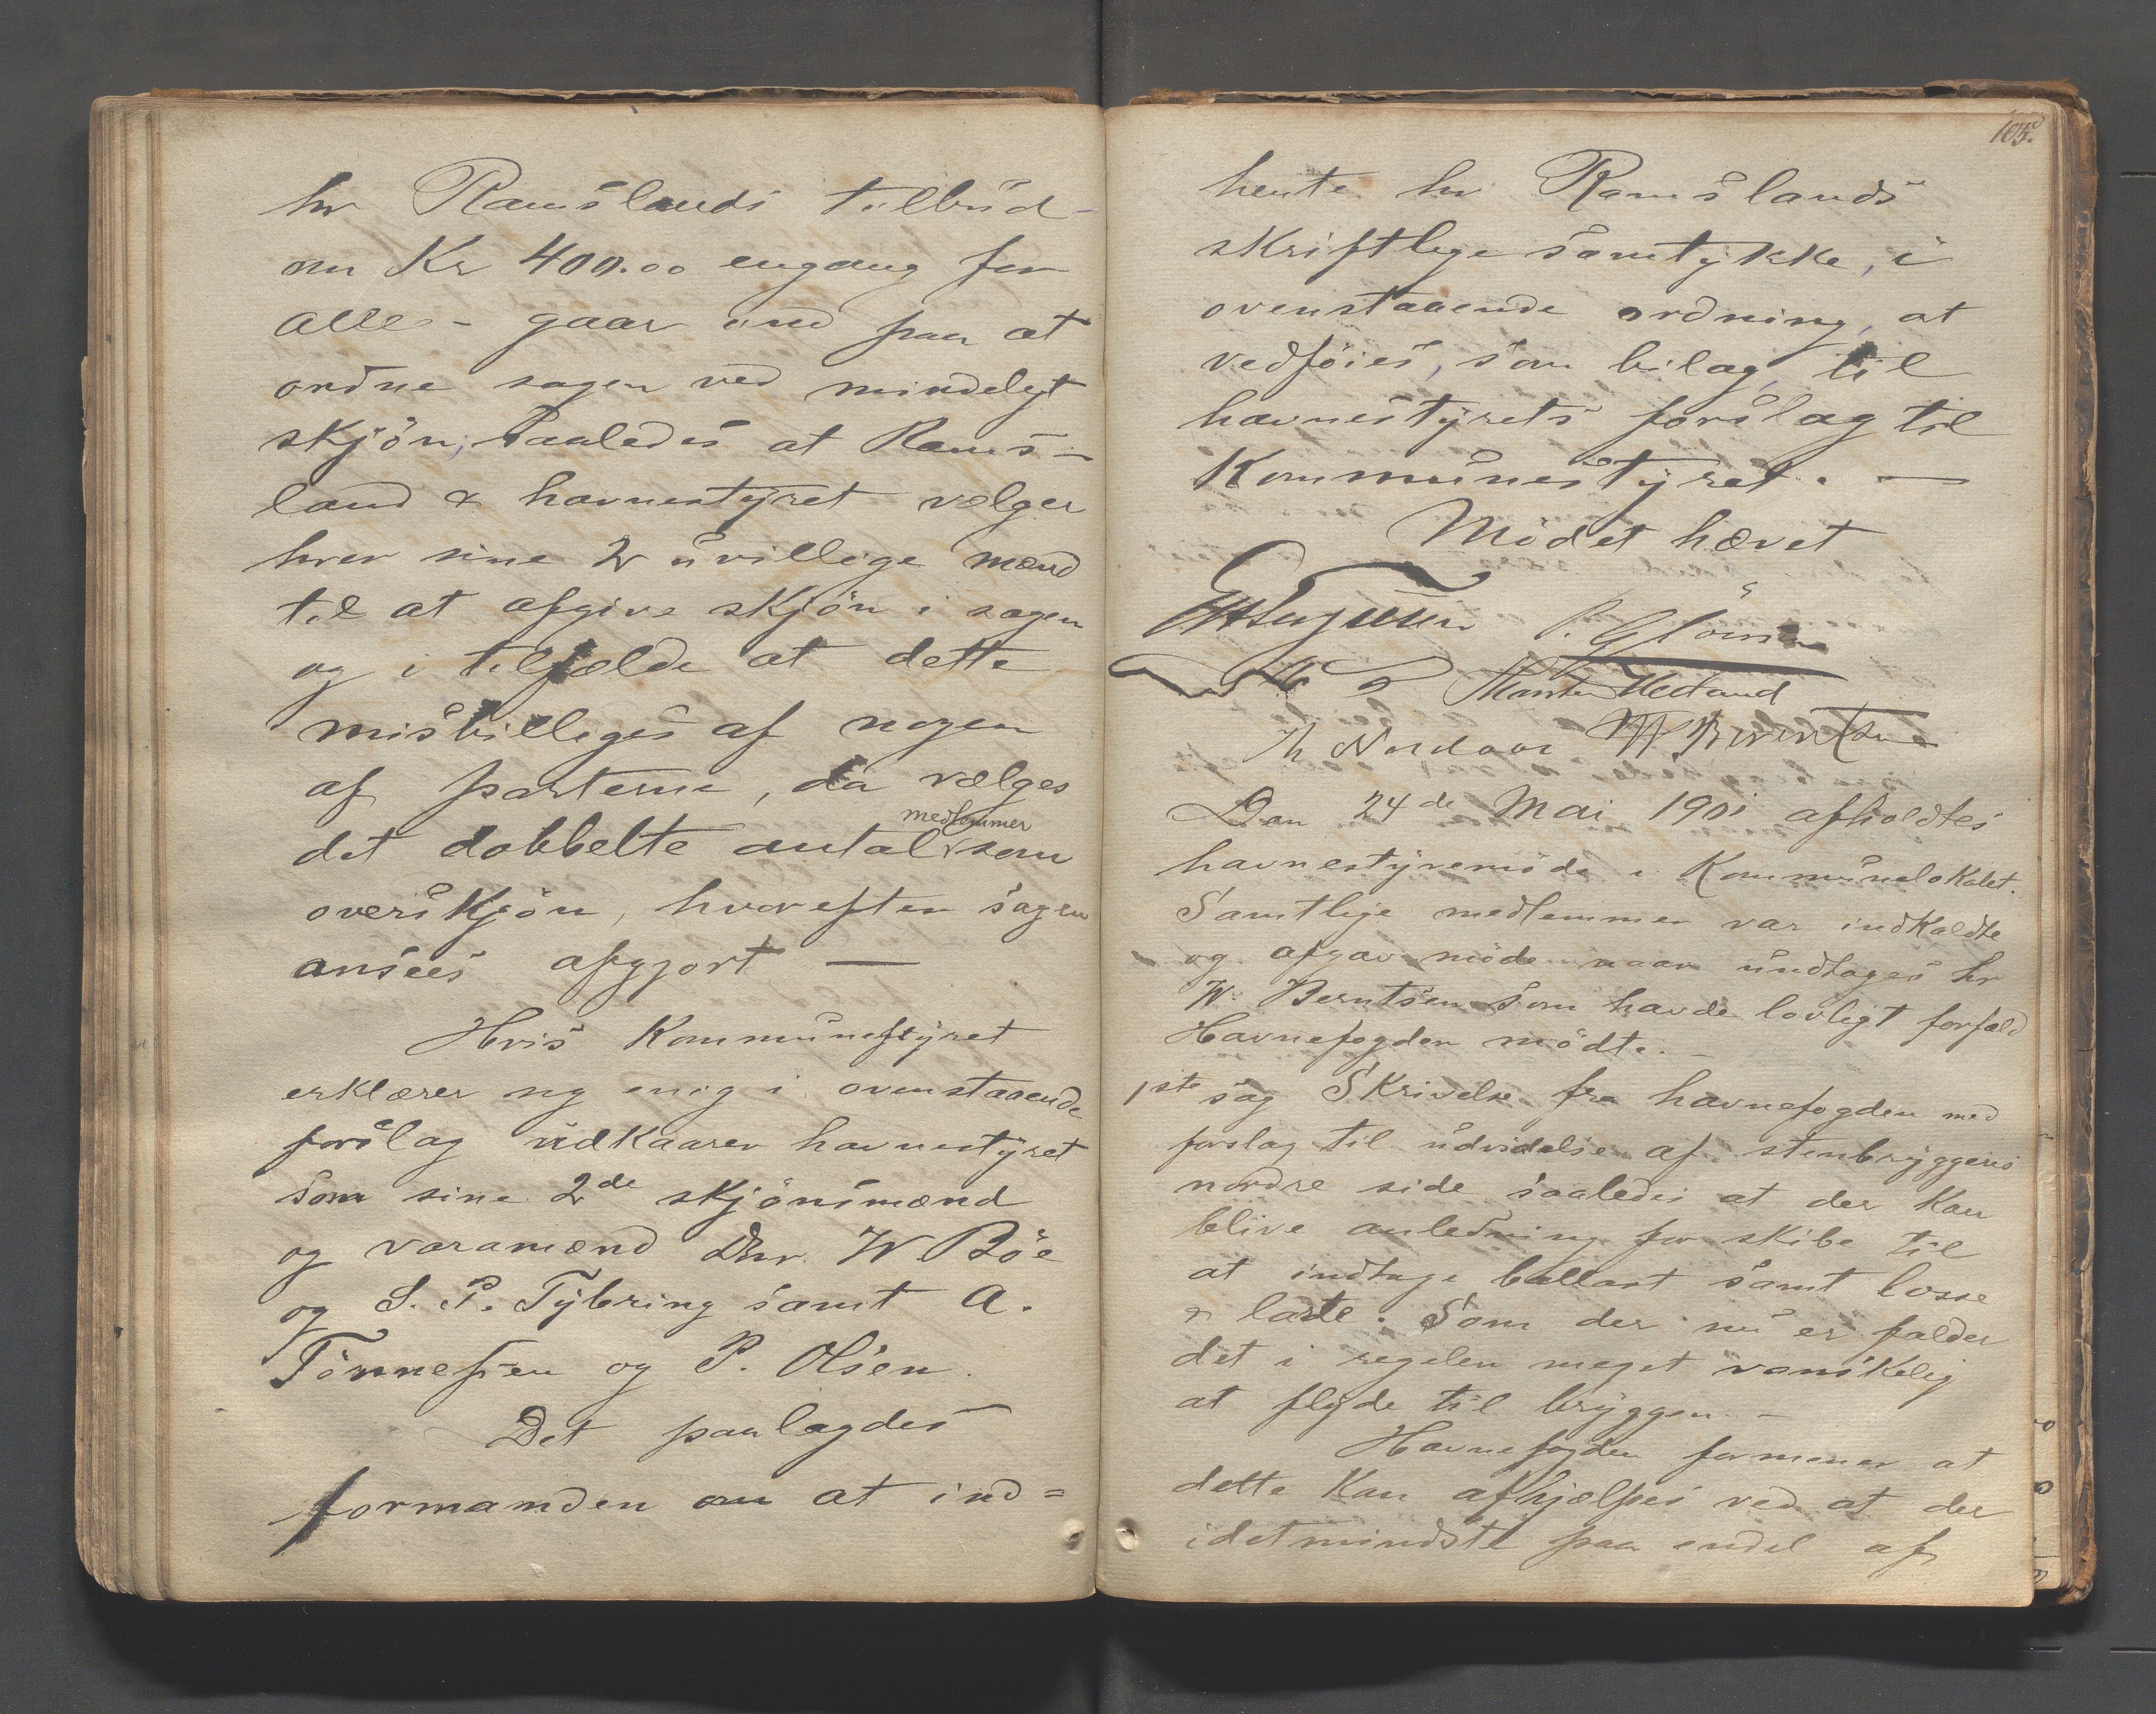 hr Ramslands tilbud
om Kr 400.00 engang for
alle - gaar ind paa at
ordne sagen ved mindeligt
skjön, saaledes at Rams-
land & havnestyret vælger
hver sine 2 uvillige mænd
til at afgive skjön i sagen
og i tilfælde at dette
misbilliges af nogen
af parterne, da vælges
medlemmer
det dobbelte antal som
overskjön, hvorefter sagen
ansees afgjort —
Hvis Kommunestyret
erklærer sig enig i ovenstaaende
forslag udkaarer havnestyret
som sine 2de skjönsmænd
og varamænd Dhr. W Böe
og S. P. Tybring samt A.
Tönnessen og P. Olsen.
Det paalagdes
formanden om at ind=
105.
hente hr Ramslands
skriftlige samtykke, i
ovenstaaende ordning, at
vedföies, som bilag, til
havnestyrets forslag til
Kommunestyret. —
Mödet hævet
P. G
Hetland
Th Nordaas W. Berentsen
Den 24de Mai 1901 afholdtes
havnestyremöde i Kommunelokalet.
Samtlige medlemmer var indkaldte
og afgav möde naar undtages hr
W. Berntsen som havde lovligt forfald
Havnefogden mödte. —
1ste sag Skrivelse fra havnefogden med
forslag til udvidelse af stenbryggens
nordre side saaledes at der kan
blive anledning for skibe til
at indtage ballast samt losse
& laste. Som der nu er falder
det i regelen meget vanskelig
at flyde til bryggen. —
Havnefogden formener at
dette kan afhjælpes ved at der
idetmindste paa endel af